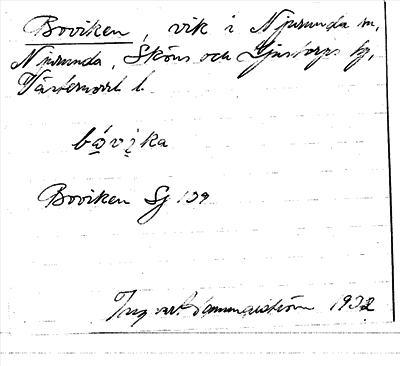 Boviken, vik i Njurunda sn,
Njurunda, Sköns och Ljustorps tg,
Västernorrl. l.
Boviken Sj 139
Ingvar Hammarström 1932